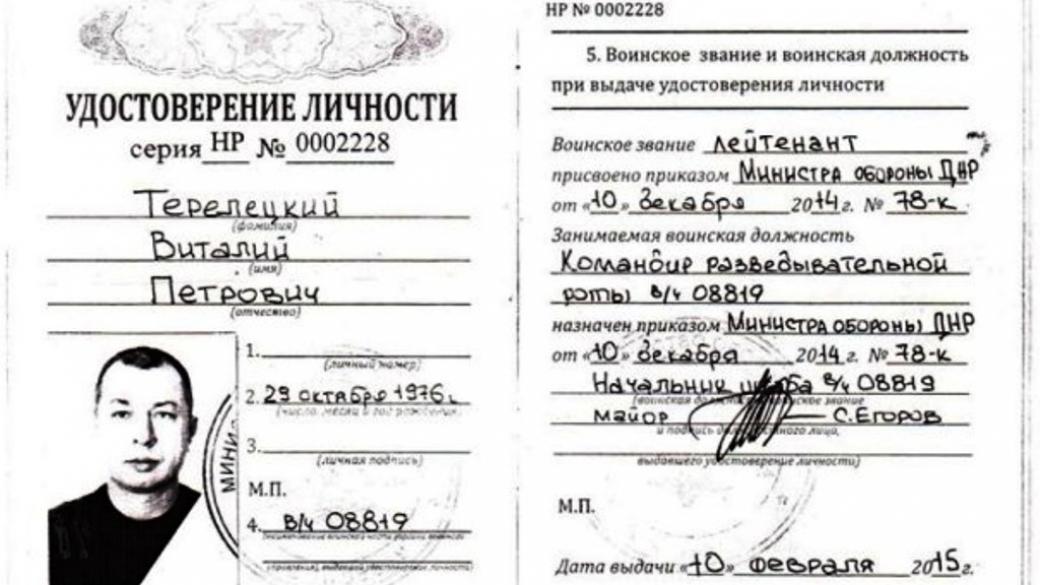 УДОСТОВЕРЕНИЕ ЛИЧНОСТИ
серия НР № 0002228
Терелецкий
(фамилия)
Виталий
(имя)
Петрович
(отчество)
1.
(личный номер)
2. 29 октября 1976 г.
(число, месяц и год рождения)
3.
(личная подпись)
МИНИ
М.П.
4. в/ч 08819
НР № 0002228
5. Воинское звание и воинская должность
при выдаче удостоверения личности
Воинское звание лейтенант
присвоено приказом Министра обороны ДНР
от «10» декабря 2014 г. № 78-к
Занимаемая воинская должность
Командир разведывательной
роты в/ч 08819
назначен приказом Министра обороны ДНР
от «10» декабря 2014 г. № 78-к
Начальник штаба в/ч 08819
(воинская должность, воинское звание
майор С.Егоров
и подпись должностного лица,
выдавшего удостоверение личности)
М.П.
Дата выдачи «10» февраля 2015 г.